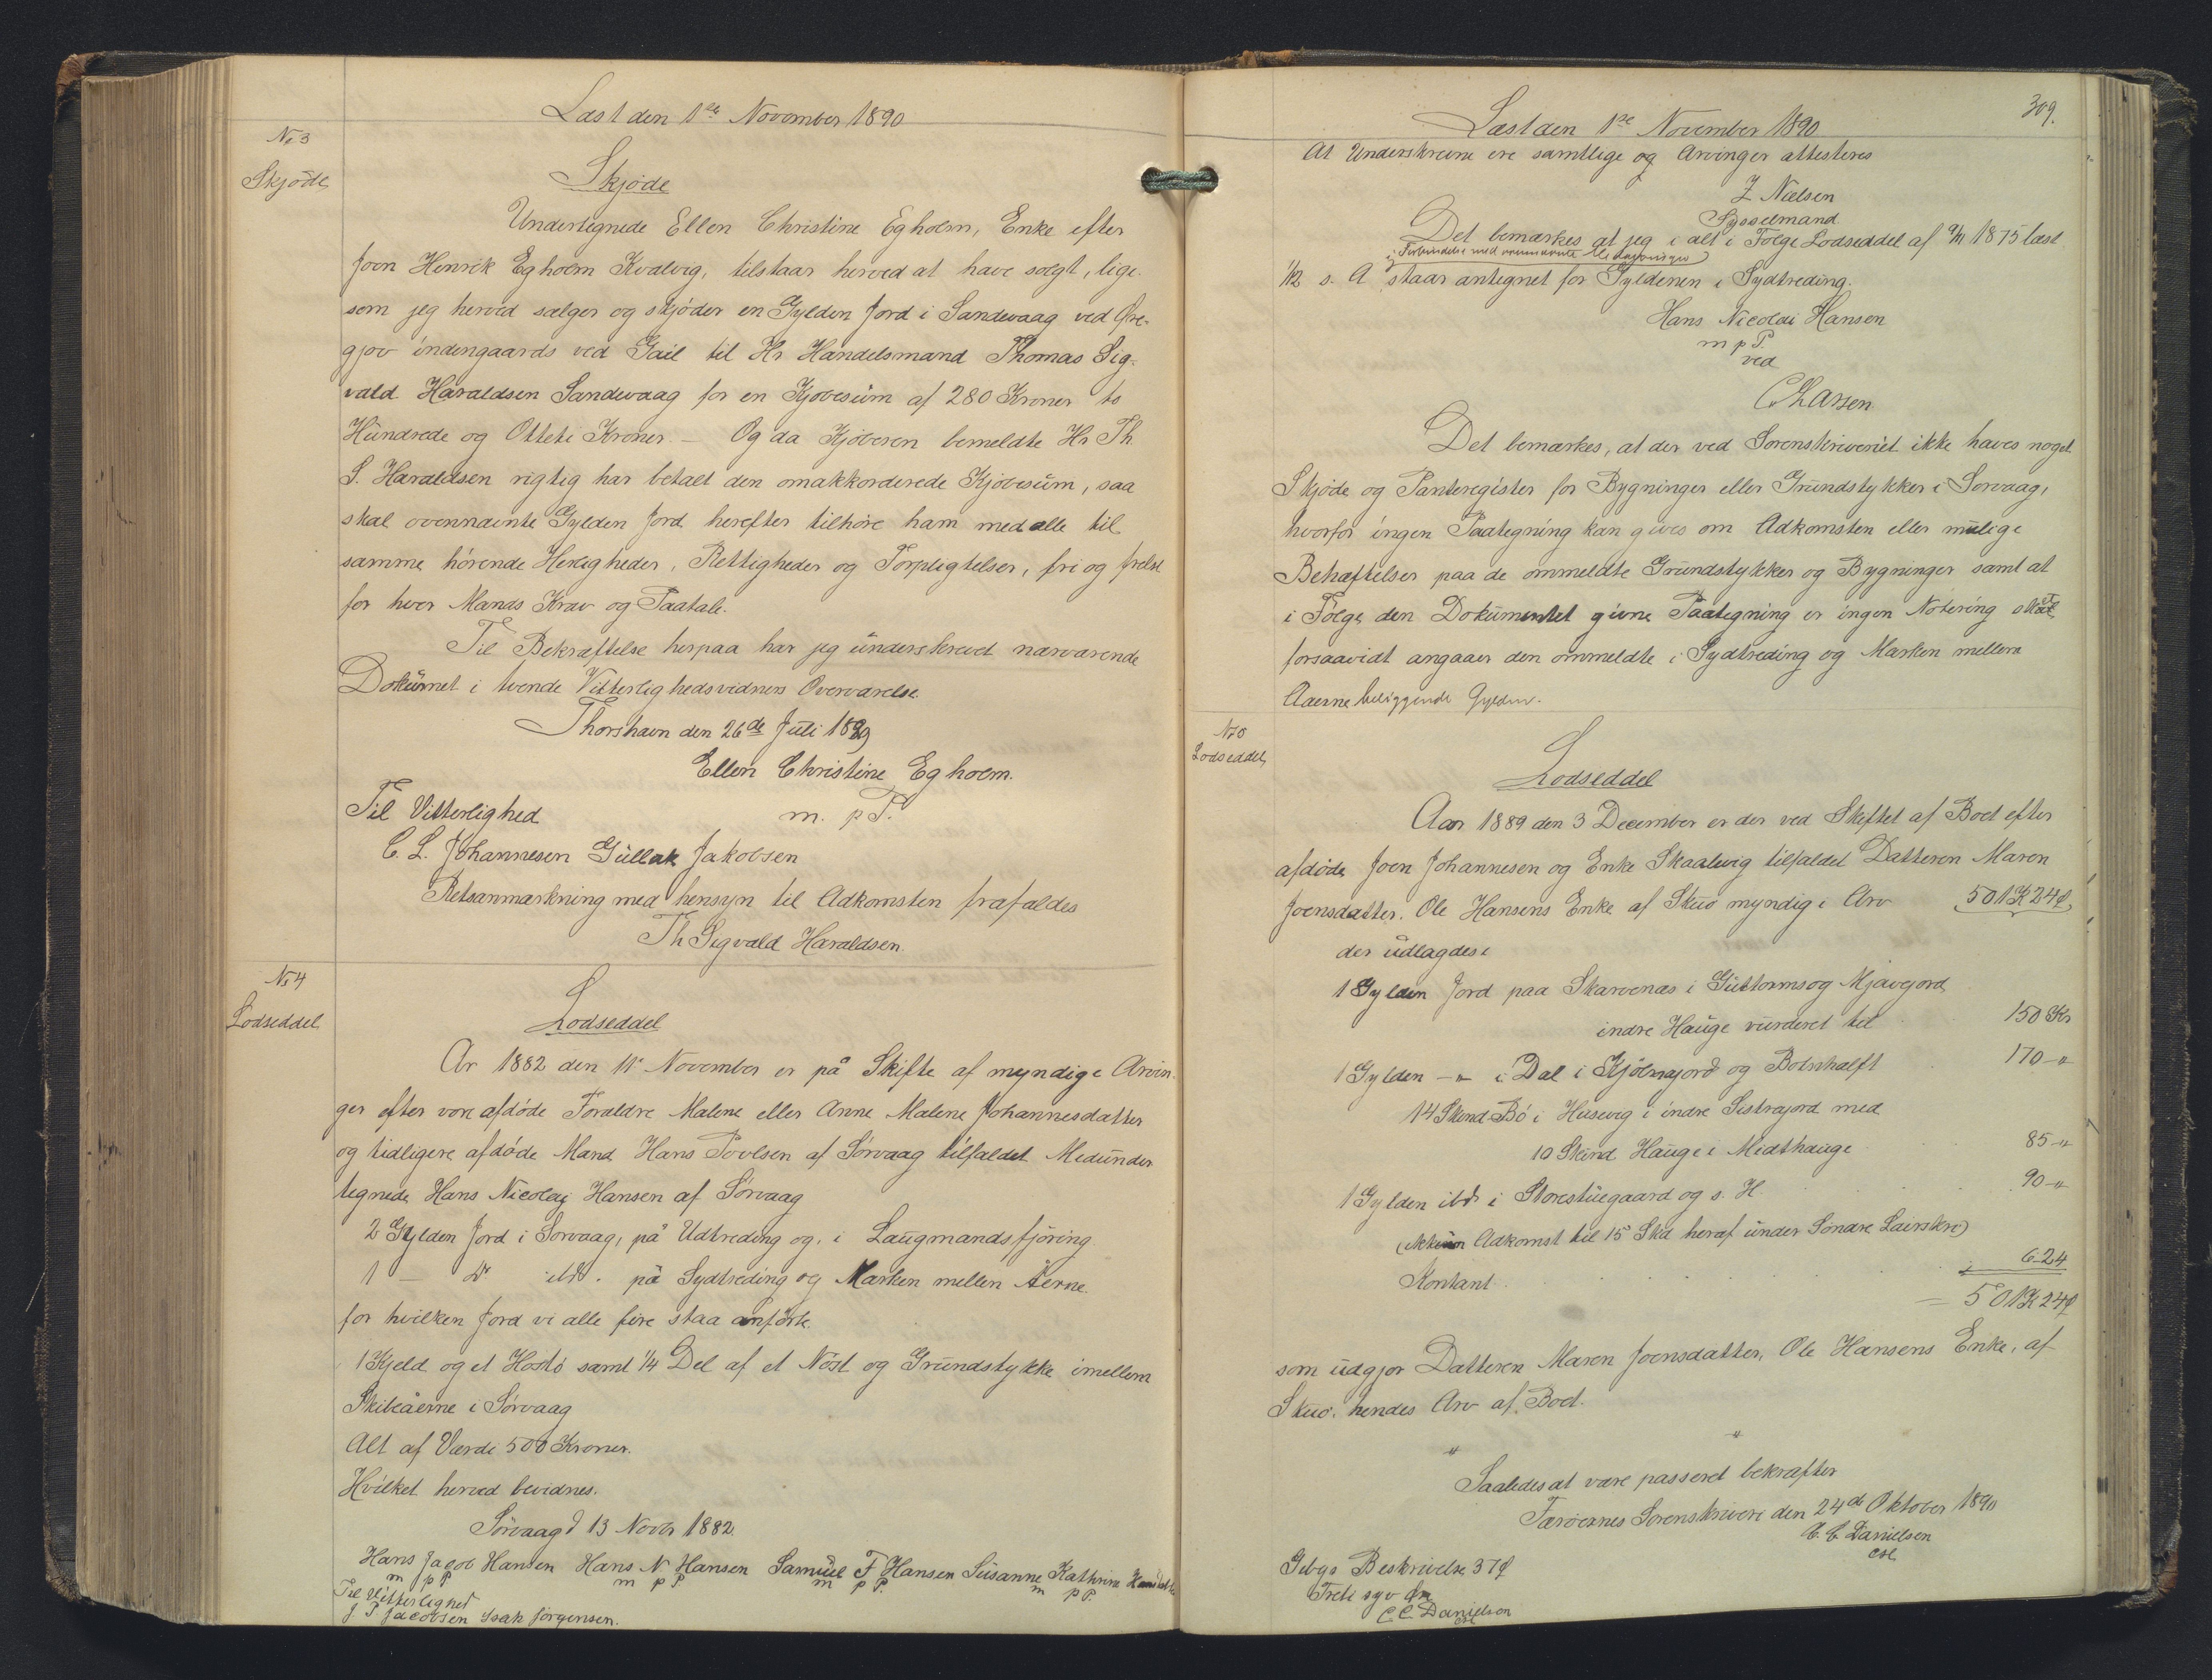 Læst den 1ste November 1890
No 3
Skjøde
Skjøde
Undertegnede Ellen Christine Egholm, Enke efter
Joen Henrik Egholm Kvalvig, tilstaar herved at have solgt, lige-
som jeg herved sælger og skjøder en Gylden Jord i Sandevaag ved Øre-
gjov indengaards ved Gail til Hr. Handelsmand Thomas Sig-
vald Haraldsen Sandevaag for en Kjøbesum af 280 Kroner to
Hundrede og Otteti Kroner. — Og da Kjøberen bemeldte Hr Th
S. Haraldsen rigtig har betalt den omakkorderede Kjøbesum, saa
skal ovennævnte Gylden Jord herefter tilhøre ham med alle til
samme hørende Herligheder, Rettigheder og Forpligtelser, fri og frelst
for hver Mands Krav og Paatale.
Til Bekræftelse herpaa har jeg underskrevet nærværende
Dokumet i tvende Vitterlighedsvidners Overværelse.
Thorshavn den 26de Juli 1889
Ellen Christine Egholm.
m. p P.
Til Vitterlighed
C. L. Johannesen Gullak Jakobsen
Retsanmærkning med hensyn til Adkomsten frafaldes
Th Sigvald Haraldsen.
No 4
Lodseddel
Lodseddel
Ar 1882 den 11' November er på Skifte af myndige Arvin-
ger efter vore afdøde Forældre Malene eller Anne Malene Johannesdatter
og tidligere afdøde Mand Hans Povlsen af Sørvaag tilfaldet Medunder
tegnede Hans Nicolaj Hansen af Sørvaag
2 Gylden Jord i Sørvaag, på Udtreding og, i Laugmandsfjøring
1 — do ibd. på Sydtreding og Marken mellen Åerne.
for hvilken Jord vi alle fire staa anførte.
1 Kjeld og et Hostø samt 1/4 Del af et Nøst og Grundstykke imellem
Skibeåerne i Sørvaag
Alt af Værde 500 Kroner.
Hvilket herved bevidnes.
Sørvaag d 13 Novbr 1882.
Hans Jacob Hansen Hans N Hansen Samuel F Hansen Susanne Kathrine
m p P m p P m p P. m p P.
Til Vitterlighed
J P Jacobsen Isak Jørgensen.
309.
Læst den 1ste November 1890
At Underskrevne ere samtlige og Arvinger attesteres
Z Nielsen
Sysselmand.
Det bemærkes at jeg i alt i Følge Lodseddel af 1875 læst
i Forbindelse med
1/2 s. A staar antegnet for Gyldenen i Sydtreding.
Hans Nicolai Hansen
m p P.
ved
C Larsen
Det bemærkes, at der ved Sorenskriveriet ikke haves noget
Skjøde og Panteregister for Bygninger eller Grundstykker i Sørvaag,
hvorfor ingen Paategning kan gives om Adkomsten eller mulige
Behæftelser paa de ommeldte Grundstykker og Bygninger samt at
i Følge den Dokumentet givne Paategning er ingen Notering sket
forsaavidt angaaer den ommeldte i Sydtreding og Marken mellem
Aaerne beliggende Gylden.
No 5
Lodseddel
Lodseddel
Aar 1889 den 3 December er der ved Skiftet af Boet efter
afdøde Joen Johannesen og Enke Skaalevig tilfaldet Datteren Maren
Joensdatter. Ole Hansens Enke af Skuø myndig i Arv 501 K 24 Ø
der udlagdes:
1 Gylden Jord paa Skarvenæs i Guttormsog Mjavejord
indre Hauge vurderet til 150 Kr
1 Gylden —"— i Dal i Kjølnajord og Botnhalft 170 — "
14 Skind Bø i Husevig i indre Sistrajord med
10 Skind Hauge i Midthauge 85 — "
1 Gylden ibd i Storestuegaard og s. H. 90 — "
Adkomst til 15 Skd heraf under Søndre Lairskre)
Kontant 6-24
= 501 K 24 Ø
som udgjør Datteren Maren Joensdatter, Ole Hansens Enke, af
Skuø. hendes Arv af Boet.
" "
Saaledes at være passeret bekræfter
Færøernes Sorenskriveri den 24de Oktober 1890
C. C. Danielsen
cst
Gebyr Beskrivelse 37 Ø
Treti syv Øre
C C Danielsen
cst